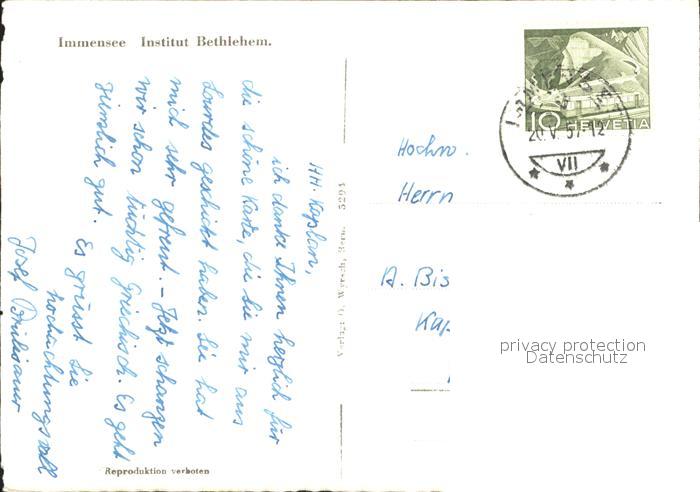 Immensee Institut Bethlehem.
HH. Kaplan,
ich danke Ihnen herzlich für
die schöne Karte, die Sie mir aus
Lourdes geschickt haben. Sie hat
mich sehr gefreut. – Jetzt schanzen
wir schon tüchtig Griechisch. Es geht
ziemlich gut.
Es grüsst Sie
hochachtungsvoll
Josef
Reproduktion verboten
Wyrsch, Bern. 5294
10 HELVETIA
20.V.57-12
VII
Hochw.
Herrn
A. Bis
Kap
privacy protection
Datenschutz